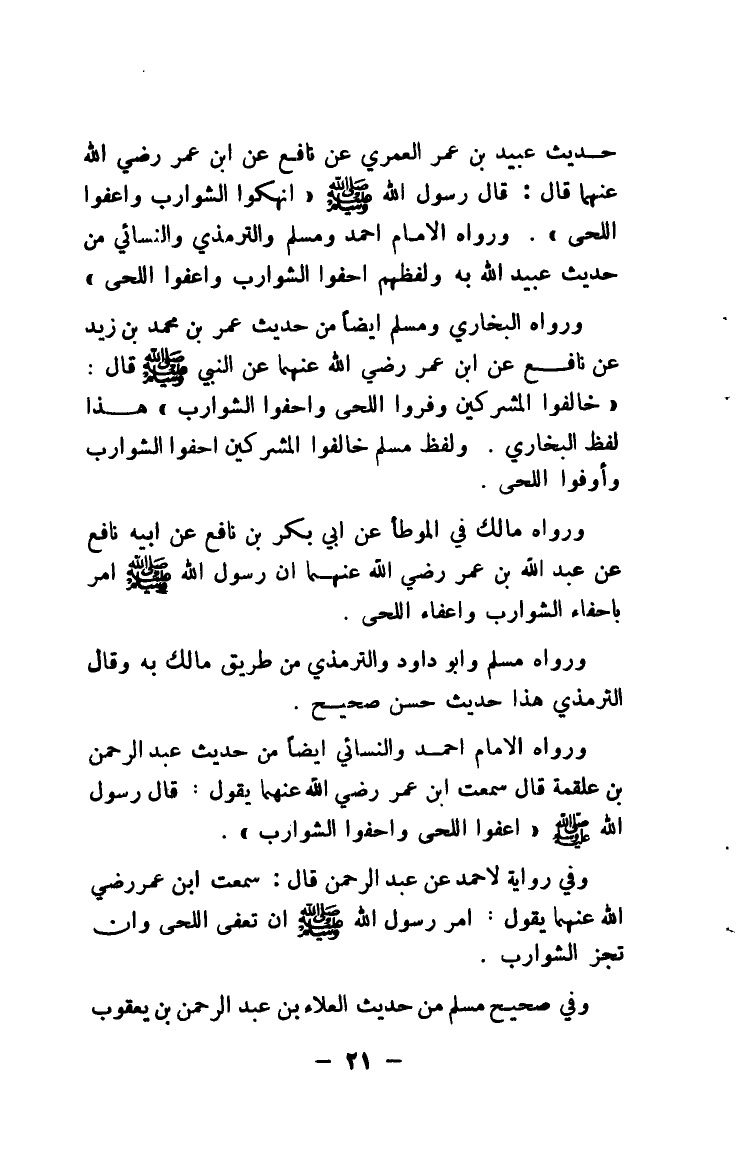 حـــديث عبيد بن عمر العمري عن نافع عن ابن عمر رضي الله
عنهما قال : قال رسول الله ﷺ « انهكوا الشوارب واعفوا
اللحى » . ورواه الامام احمد ومسلم والترمذي والنسائي من
حديث عبيد الله به ولفظهم احفوا الشوارب واعفوا اللحى »
ورواه البخاري ومسلم ايضاً من حديث عمر بن محمد بن زيد
عن نافـــع عن ابن عمر رضي الله عنهما عن النبي ﷺ قال :
« خالفوا المشركين وفروا اللحى واحفوا الشوارب » هـــذا
لفظ البخاري . ولفظ مسلم خالفوا المشركين احفوا الشوارب
وأوفوا اللحى .
ورواه مالك في الموطأ عن ابي بكر بن نافع عن ابيه نافع
عن عبد الله بن عمر رضي الله عنهـــما ان رسول الله ﷺ امر
باحفاء الشوارب واعفاء اللحى .
ورواه مسلم وابو داود والترمذي من طريق مالك به وقال
الترمذي هذا حديث حسن صحيـــح .
ورواه الامام احمـــد والنسائي ايضاً من حديث عبد الرحمن
بن علقمة قال سمعت ابن عمر رضي الله عنهما يقول : قال رسول
الله ﷺ « اعفوا اللحى واحفوا الشوارب » .
وفي رواية لاحمد عن عبد الرحمن قال : سمعت ابن عمر رضي
الله عنهما يقول : امر رسول الله ﷺ ان تعفى اللحى وان
تجز الشوارب .
وفي صحيح مسلم من حديث العلاء بن عبد الرحمن بن يعقوب
– ٢١ –